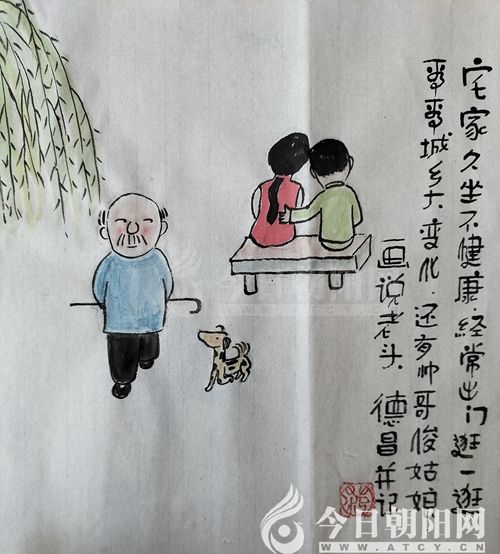 宅家久坐不健康经常出门逛一逛
看看城乡大变化.还有帅哥俊姑娘
画说老头 德昌并记
今日朝阳网
WWW.ATCY.CN